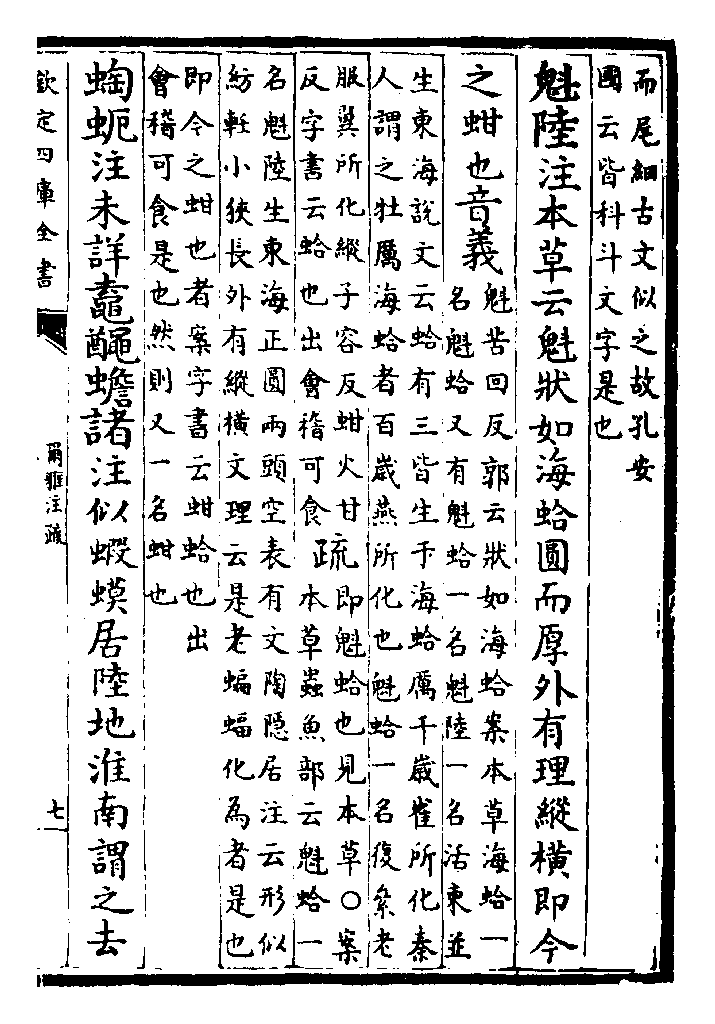 而尾細古文似之故孔安
國云皆科斗文字是也
魁陸注本草云魁狀如海蛤圓而厚外有理縱橫即今
之蚶也音義
魁苦回反郭云狀如海蛤案本草海蛤一
名魁蛤又有魁蛤一名魁陸一名活東並
生東海說文云蛤有三皆生于海蛤厲千歲雀所化秦
人謂之牡厲海蛤者百歲燕所化也魁蛤一名復絫老
服翼所化縱子容反蚶火甘
反字書云蛤也出會稽可食
疏
即魁蛤也見本草○案
本草蟲魚部云魁蛤一
名魁陸生東海正圓兩頭空表有文陶隱居注云形似
紡軖小狹長外有縱橫文理云是老蝙蝠化為者是也
即今之蚶也者案字書云蚶蛤也出
會稽可食是也然則又一名蚶也
蜪蚅注未詳鼁𪓰蟾諸注似蝦蟆居陸地淮南謂之去
欽定四庫全書
爾雅注疏
七